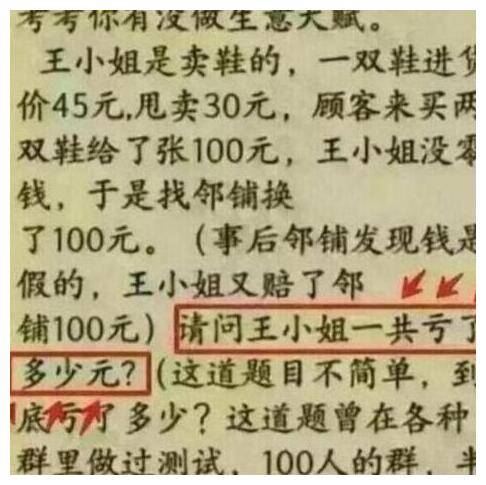 考考你有没做生意天赋。
王小姐是卖鞋的，一双鞋进货
价45元,甩卖30元，顾客来买两
双鞋给了张100元，王小姐没零
钱，于是找邻铺换
了100元。（事后邻铺发现钱是
假的，王小姐又赔了邻
铺100元）请问王小姐一共亏了
多少元？（这道题目不简单，到
底亏了多少？这道题曾在各种
群里做过测试，100人的群，半